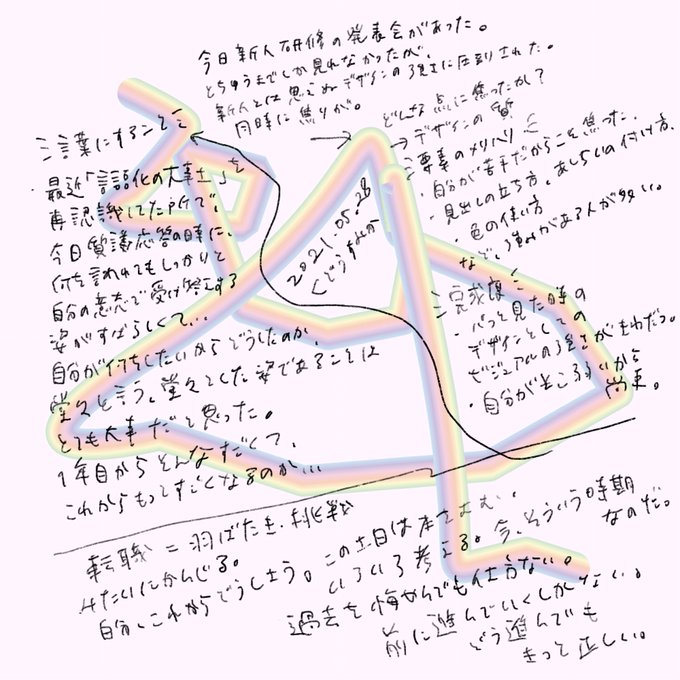 今日新人研修の発表会があった。
とちゅうまでしか見れなかったが、
新人とは思えぬデザインの強さに圧倒された。
同時に焦りが。
どんな点に焦ったか?
→デザインの質
ミ要素のメリハリミ
・自分が苦手だからこそ焦った。
・見出しの立ち方、あしらいの付け方、
・色の使い方
など、強みがある人が多い。
ミ完成度ミ
・パっと見た時の
デザインとしての
ビジュアルの強さがそれだっ。
・自分がそこ弱いから
尚更。
2021.05.28
くどうすみか
ミ言葉にすることミ
・最近「言語化の大事さ」を
再認識してた所で、
今日質議応答の時に、
何を言われてもしっかりと
自分の意志で受け答えする
姿がすばらしくて...
自分が何をしたいからどうしたのか、
堂々と言う、堂々とした姿であることは
とても大事だと思った。
1年目からそんなすごくて、
これからもっとすごくなるのか...
転職=羽ばたき・挑戦
みたいにかんじる。
自分、これからどうしよう。この土日は本をよむ、
いろいろ考える。今、そういう時期
なのだ。
過去を悔やんでも仕方ない。
前に進んでいくしかない。
どう進んでも
きっと正しい。